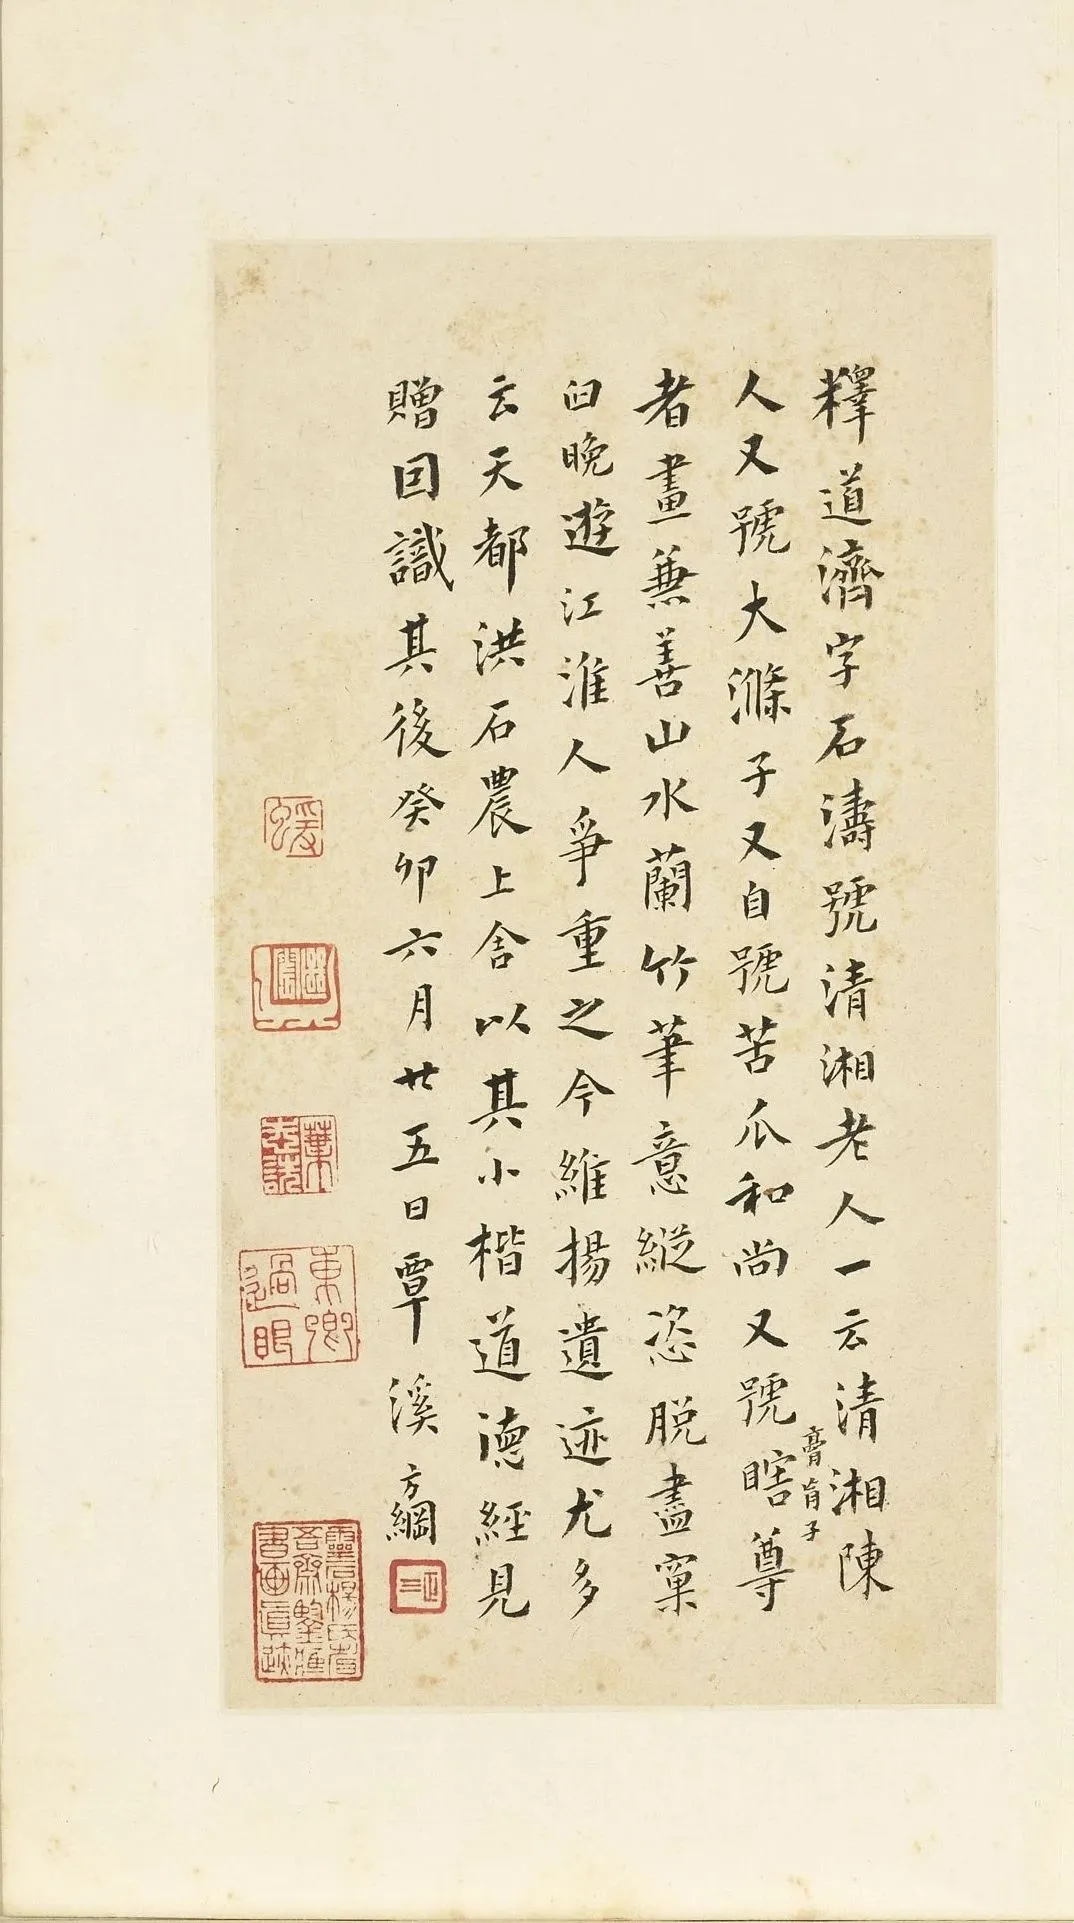 釋道濟字石濤號清湘老人一云清湘陳
人又號大滌子又自號苦瓜和尚又號瞎尊
膏肓子
者畫兼善山水蘭竹筆意縱恣脫盡窠
臼晚遊江淮人爭重之今維揚遺迹尤多
云天都洪石農上舍以其小楷道德經見
贈因識其後癸卯六月廿五日覃溪方綱
東卿過眼